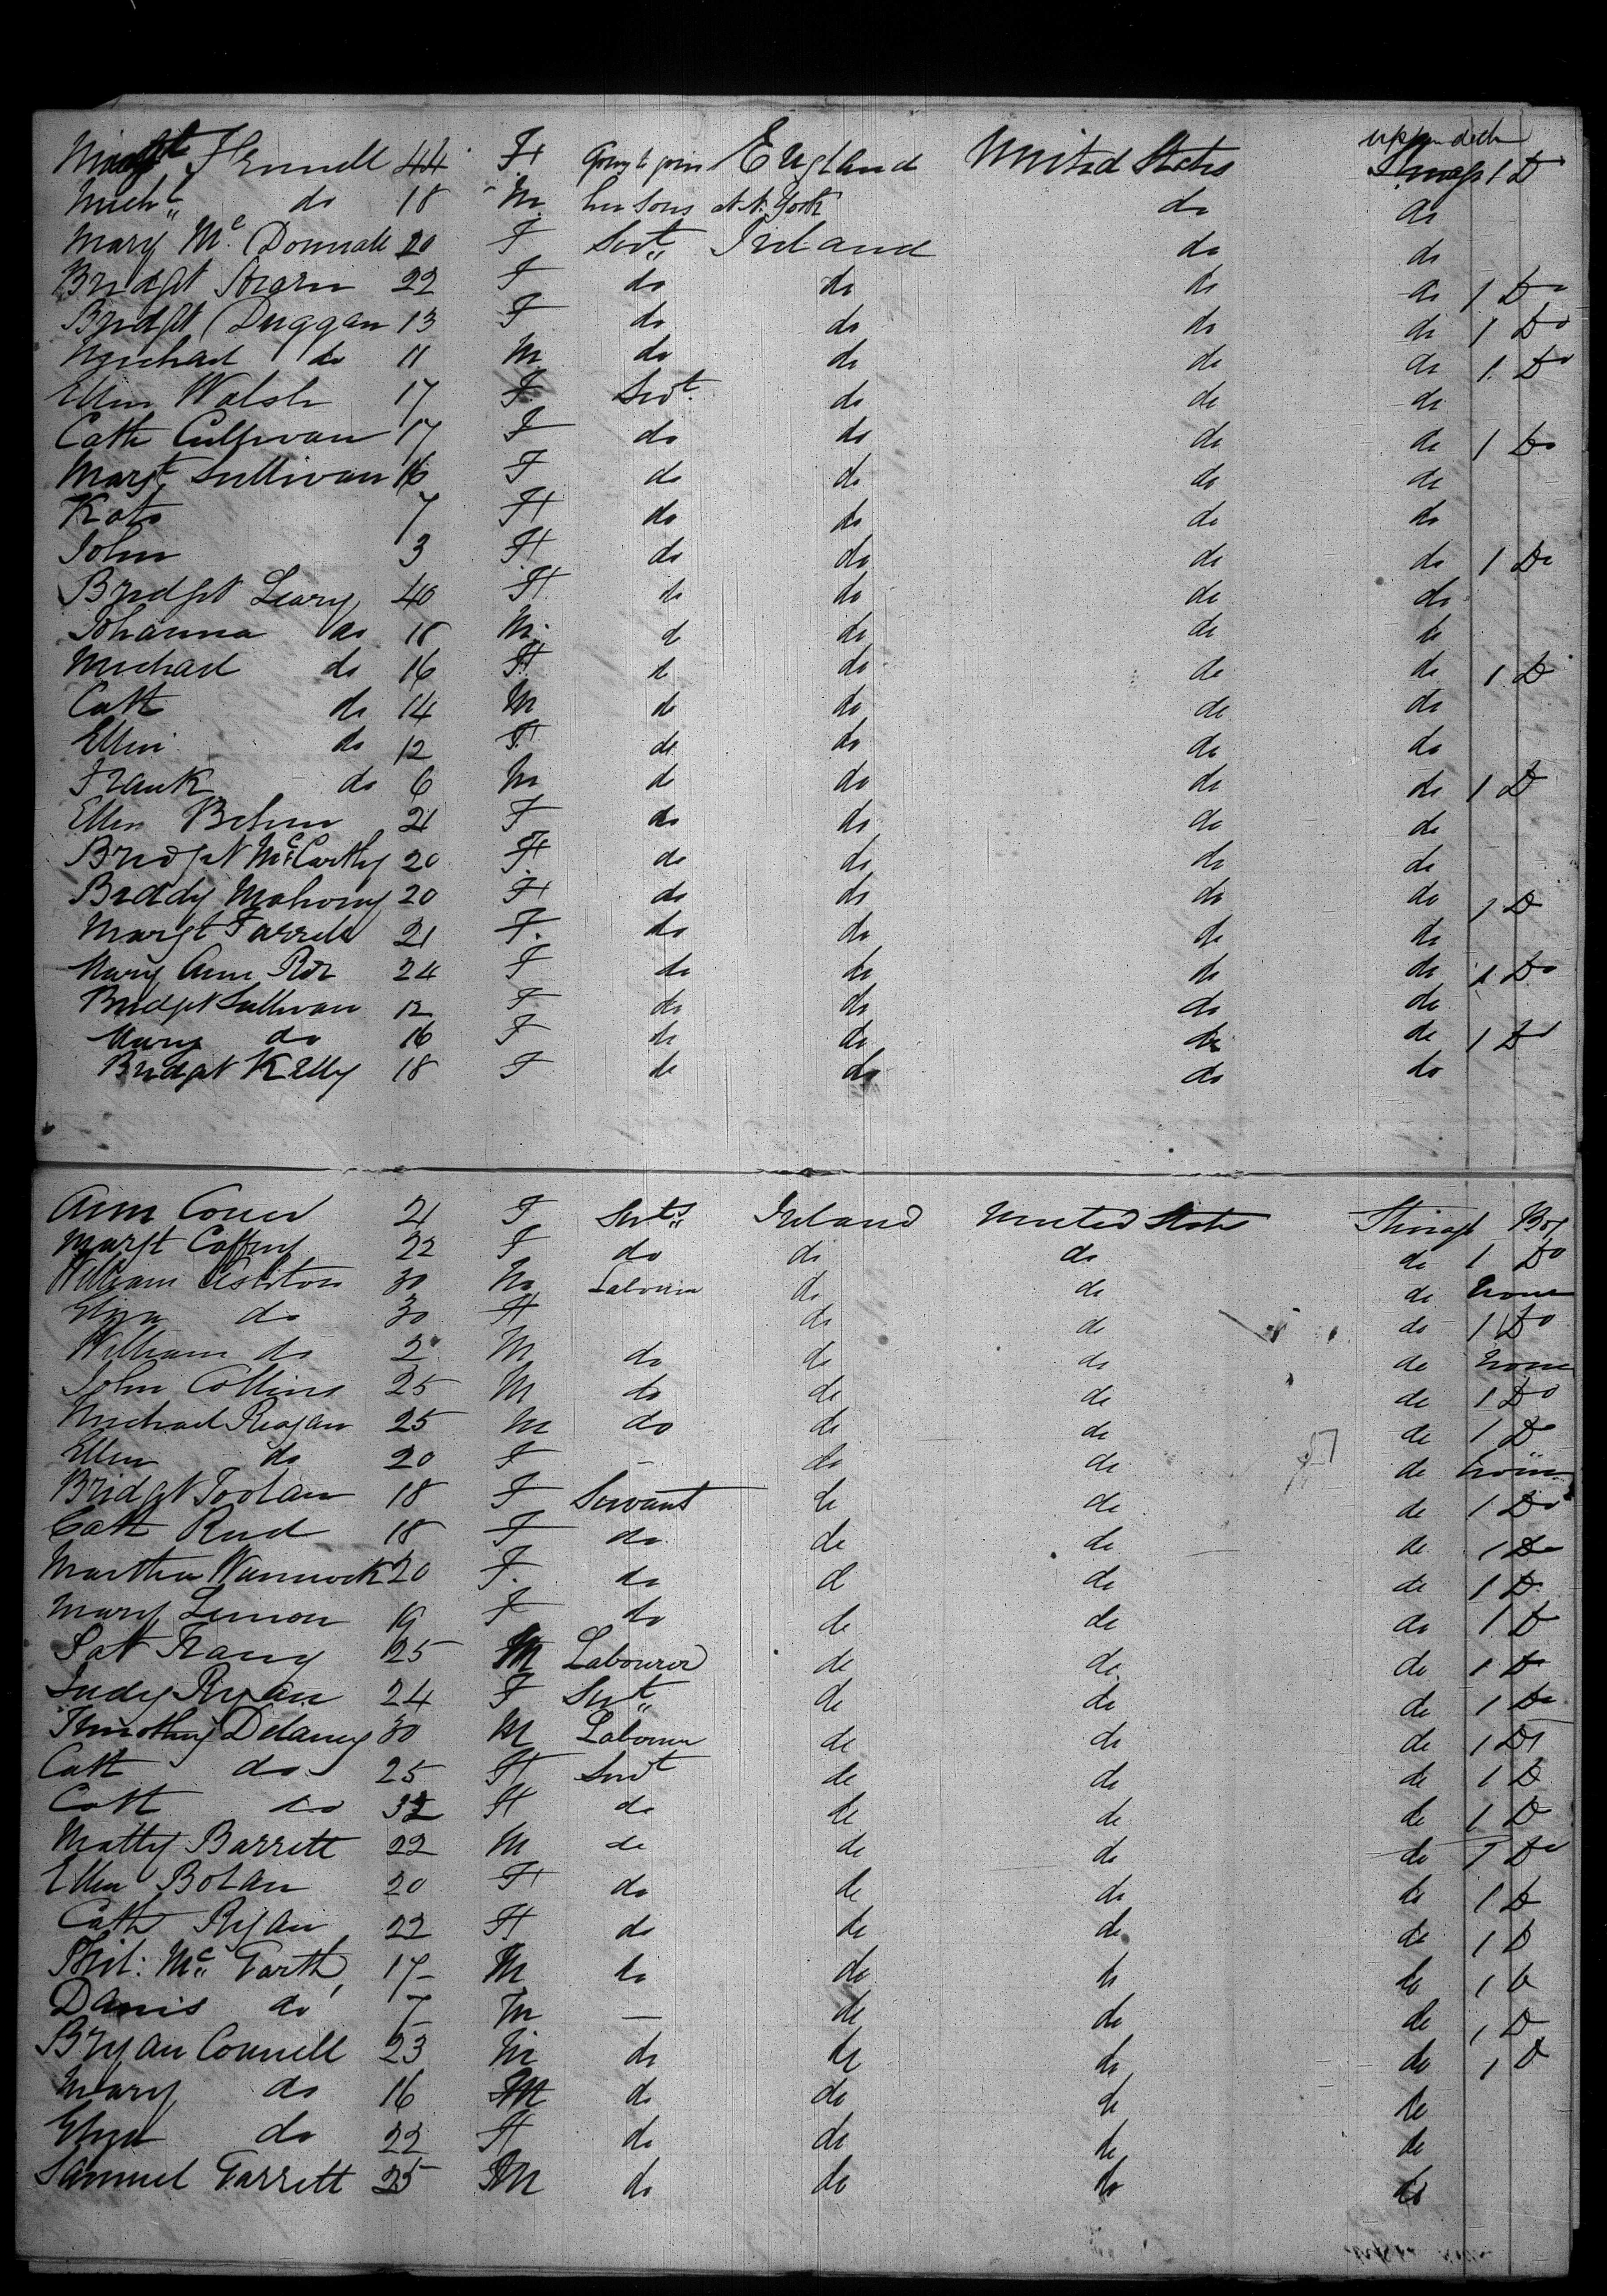 upper deck
Margt Fennell 44 F going to join England United States Steerage 1 Do
Michl do 18 M her sons at N. York do do
Mary Mc Donnall 20 F Servt Ireland do do
Bridget 22 F do do do do 1 Do
Bridget Duggan 13 F do do do do 1 Do
Michael do 11 M do do do do 1 Do
Ellen Walsh 17 F Servt do do do
Cath Cullivan 17 F do do do do 1 Do
Margt Sullivan 16 F do do do do
Kate 7 F do do do do
John 3 F do do do do 1 Do
Bridget Leary 40 F do do do do
Johanna do 18 M do do do do
Michael do 16 F do do do do 1 D
Cath do 14 M do do do do
Ellen do 12 F do do do do
Frank do 6 M do do do do 1 D
Ellen 21 F do do do do
Bridget McCarthy 20 F do do do do
Biddy Mahony 20 F do do do do 1 D
Margt Farrell 21 F do do do do
Mary Ann 24 F do do do do 1 Do
Bridget Sullivan 12 F do do do do
Mary do 16 F do do do do 1 Do
Bridget Kelly 18 F do do do do
Ann 21 F Servts Ireland United States Steerage Box
Margt 22 F do do do do 1 Do
William Ashton 30 M Labourer do do do none
Eliza do 30 F do do do 1 Do
William do 2 M do do do do none
John Collins 25 M do do do do 1 Do
Michael Reagan 25 M do do do do 1 D
Ellen do 20 F – do do do none
Bridget Toolan 18 F Servant do do do 1 Do
Cath 18 F do do do do 1 Do
Martha 20 F do do do do 1 D
Mary Lemon 19 F do do do do 1 D
Pat 25 M Labourer do do do 1 D
Judy Ryan 24 F Servt do do do 1 Do
Timothy Delaney 30 M Labourer do do do 1 Do
Cath do 25 F Servt do do do 1 D
Cath do 32 F do do do do 1 D
Matty Barrett 22 M do do do do 1 Do
Ellen Bolan 20 F do do do do 1 D
Cath Ryan 22 F do do do do 1 D
Phil: Mc Garth 17 M do do do do 1 D
Danis do 7 M — do do do 1 D
Bryan Connell 23 M do do do do 1 D
Mary do 16 do do do do
Eliza do 22 F do do do do
Samuel Garrett 25 M do do do do